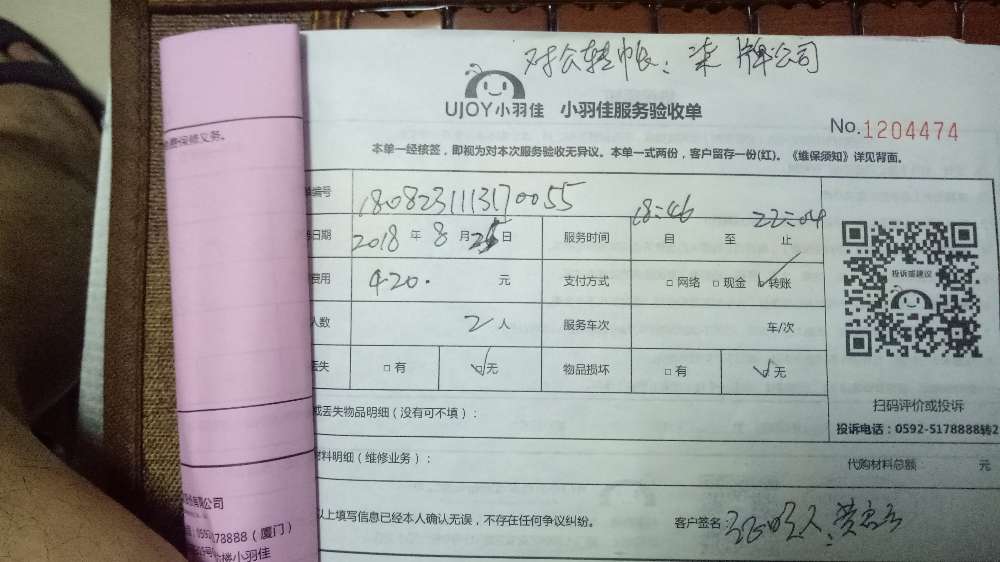 对公转帐：柒牌公司
UJOY小羽佳 小羽佳服务验收单
No.1204474
本单一经核签，即视为对本次服务验收无异议。本单一式两份，客户留存一份(红)。《维保须知》详见背面。
编号 1808231113170055
日期 2018 年 8 月 日 服务时间 18:46 自 至 22:04 止
费用 420. 元 支付方式 □网络 □现金 ☑转账
人数 2 人 服务车次 车/次
丢失 □有 ☑无 物品损坏 □有 ☑无
投诉或建议
扫码评价或投诉
投诉电话：0592-5178888转2
或丢失物品明细（没有可不填）：
材料明细（维修业务）： 代购材料总额 元
以上填写信息已经本人确认无误，不存在任何争议纠纷。 客户签名：证明人：黄
保修义务。
有限公司
0592 78888（厦门）
楼小羽佳